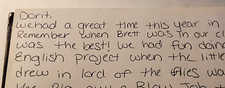 Dorit.
We had a great time this year in
Remember when Brett was in our cl
was the best! we had fun danc
English project when the little
drew in lord of the flies wa